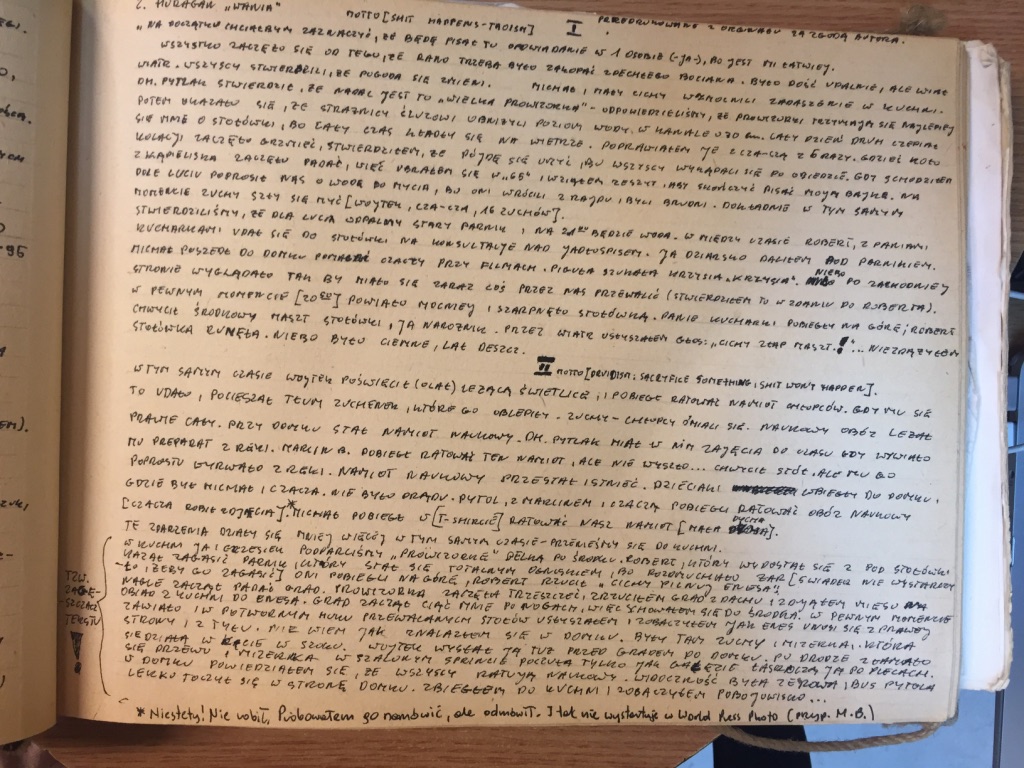 2. HURAGAN "WANIA"
MOTTO [SHIT HAPPENS-TAOISM] I PRZEDRUKOWANE Z ORGINAŁU ZA ZGODĄ AUTORA.
"NA POCZĄTKU CHCIAŁBYM ZAZNACZYĆ, ŻE BĘDĘ PISAĆ TU OPOWIADANIE W 1 OSOBIE (-JA-), BO JEST MI ŁATWIEJ.
WSZYSTKO ZACZĘŁO SIĘ OD TEGO, ŻE RANO TRZEBA BYŁO ZAKOPAĆ ZDECHŁEGO BOCIANA. BYŁO DOŚĆ UPALNIE, ALE WIAŁ
WIATR. WSZYSCY STWIERDZILI, ŻE POGODA SIĘ ZMIENI. MICHAŁ, MAŁY CICHY WZMOCNILI ZADASZENIE W KUCHNI.
DH. PYTLAK STWIERDZIŁ, ŻE NADAL JEST TO "WIELKA PROWIZORKA" - ODPOWIEDZIELIŚMY, ŻE PROWIZORKI TRZYMAJĄ SIĘ NAJLEPIEJ
POTEM OKAZAŁO SIĘ, ŻE STRAŻNICY ŚLUZOWI OBNIŻYLI POZIOM WODY W KANALE O 70 cm. CAŁY DZIEŃ DRUH CZEPIAŁ
SIĘ MNIE O STOŁÓWKI, BO CAŁY CZAS KŁADŁY SIĘ NA WIETRZE. POPRAWIAŁEM JE Z CZA-CZĄ Z 6 RAZY. GDZIEŚ KOŁO
KOLACJI ZACZĘŁO GRZMIEĆ, STWIERDZIŁEM, ŻE PÓJDĘ SIĘ UMYĆ, BO WSZYSCY WYKĄPALI SIĘ PO OBIEDZIE. GDY SCHODZIŁEM
Z KĄPIELISKA ZACZĘŁO PADAĆ, WIĘC UBRAŁEM SIĘ W "GE" I WZIĄŁEM ZESZYT, ABY SKOŃCZYĆ PISAĆ MOJĄ BAJKĘ. NA
DOLE LUCIU POPROSIŁ NAS O WODĘ DO MYCIA, BO ONI WRÓCILI Z RAJDU I BYLI BRUDNI. DOKŁADNIE W TYM SAMYM
MOMENCIE ZUCHY SZŁY SIĘ MYĆ [WOJTEK, CZA-CZA, 16 ZUCHÓW].
STWIERDZILIŚMY, ŻE DLA LUCIA ODPALIMY STARY PARNIK I NA 21⁰⁰ BĘDZIE WODA. W MIĘDZY CZASIE ROBERT, Z PANIAMI
KUCHARKAMI UDAŁ SIĘ DO STOŁÓWKI NA KONSULTACJE NAD JADŁOSPISEM. JA DZIARSKO PALIŁEM POD PARNIKIEM.
MICHAŁ POSZEDŁ DO DOMKU POMAGAĆ CZACZY PRZY FILMACH. PIGUŁA SZUKAŁA KRZYSIA "KRZYSIA". NIEBO PO ZACHODNIEJ
STRONIE WYGLĄDAŁO TAK BY MIAŁO SIĘ ZARAZ COŚ PRZEZ NAS PRZEWALIĆ (STWIERDZIŁEM TO W ZDANIU DO ROBERTA).
W PEWNYM MOMENCIE [20⁰⁰] POWIAŁO MOCNIEJ I SZARPNĘŁO STOŁÓWKĄ. PANIE KUCHARKI POBIEGŁY NA GÓRĘ, ROBERT
CHWYCIŁ ŚRODKOWY MASZT STOŁÓWKI, JA NAROŻNIK. PRZEZ WIATR USŁYSZAŁEM GŁOS: "CICHY ZŁAP MASZT!"... NIE ZDĄŻYŁEM
STOŁÓWKA RUNĘŁA. NIEBO BYŁO CIEMNE, LAŁ DESZCZ.
II MOTTO [DRUIDISM: SACRYFICE SOMETHING, SHIT WON'T HAPPEN].
W TYM SAMYM CZASIE WOJTEK POŚWIĘCIŁ (OLAŁ) LEŻĄCĄ ŚWIETLICĘ, I POBIEGŁ RATOWAĆ NAMIOT CHŁOPCÓW. GDY MU SIĘ
TO UDAŁO, POCIESZAŁ TŁUM ZUCHENEK, KTÓRE GO OBLEPIŁY. ZUCHY-CHŁOPCY ŚMIALI SIĘ. NAUKOWY OBÓZ LEŻAŁ
PRAWIE CAŁY. PRZY DOMKU STAŁ NAMIOT NAUKOWY. DH. PYTLAK MIAŁ W NIM ZAJĘCIA DO CZASU GDY WYWIAŁO
MU PREPARAT Z RĘKI. MARCIN B. DOBIEGŁ RATOWAĆ TEN NAMIOT, ALE NIE WYSZŁO... CHWYCIŁ STÓŁ, ALE MU GO
POPROSTU WYRWAŁO Z RĘKI. NAMIOT NAUKOWY PRZESTAŁ ISTNIEĆ. DZIECIAKI WBIEGŁY DO DOMKU,
GDZIE BYŁ MICHAŁ I CZACZA. NIE BYŁO PRĄDU. PYTOL, Z MARCINEM I CZACZĄ POBIEGLI RATOWAĆ OBÓZ NAUKOWY
[CZACZA ROBIŁ ZDJĘCIA].* MICHAŁ POBIEGŁ W [T-SHIRCIE] RATOWAĆ NASZ NAMIOT [MAŁA DYCHA].
TE ZDARZENIA DZIAŁY SIĘ MNIEJ WIĘCEJ W TYM SAMYM CZASIE - PRZENIEŚMY SIĘ DO KUCHNI.
W KUCHNI JA I GRZESIEK PODPARLIŚMY "PROWIZORKĘ" BELKĄ PO ŚRODKU. ROBERT, KTÓRY WYDOSTAŁ SIĘ Z POD STOŁÓWKI
KAZAŁ ZAGASIĆ PARNIK, KTÓRY STAŁ SIĘ TOTALNYM OGNISKIEM, BO ROZDMUCHAŁO ŻAR [5 WIADER NIE WYSTARCZY-
-ŁO, ŻEBY GO ZAGASIĆ] ONI POBIEGLI NA GÓRĘ, ROBERT RZUCIŁ "CICHY PILNUJ ENESA".
NAGLE ZACZĄŁ PADAĆ GRAD. PROWIZORKA ZACZĘŁA TRZESZCZEĆ, ZRZUCIŁEM GRAD Z DACHU I ZDJĄŁEM MIĘSO NA
OBIAD Z KUCHNI DO ENESA. GRAD ZACZĄŁ CIĄĆ MNIE PO NOGACH, WIĘC SCHOWAŁEM SIĘ DO ŚRODKA. W PEWNYM MOMENCIE
ZAWIAŁO I W POTWORNYM HUKU PRZEWALANYCH STOŁÓW USŁYSZAŁEM I ZOBACZYŁEM JAK ENES UNOSI SIĘ Z PRAWEJ
STRONY I Z TYŁU. NIE WIEM JAK ZNALAZŁEM SIĘ W DOMKU. BYŁY TAM ZUCHY I MIZERKA, KTÓRA
SIEDZIAŁA W KĄCIE W SZOKU. WOJTEK WYSŁAŁ JĄ TUŻ PRZED GRADEM DO DOMKU. PO DRODZE ZŁAMAŁO
SIĘ DRZEWO I MIZERKA W SZALONYM SPRINCIE POCZUŁA TYLKO JAK GAŁĘZIE ŁASKOCZĄ JĄ PO PLECACH.
W DOMKU POWIEDZIAŁEM SIĘ, ŻE WSZYSCY RATUJĄ NAUKOWY. WIDOCZNOŚĆ BYŁA ZEROWA, BUS PYTOLA
LEKKO TOCZYŁ SIĘ W STRONĘ DOMKU. ZBIEGŁEM DO KUCHNI I ZOBACZYŁEM POBOJOWISKO...
TZW.
ZAGĘ-
SZCZACZ
TEKSTU
!
* Niestety! Nie robił, Próbowałem go namówić, ale odmówił. I tak nie wystartuje w World Press Photo (przyp. M.B.)